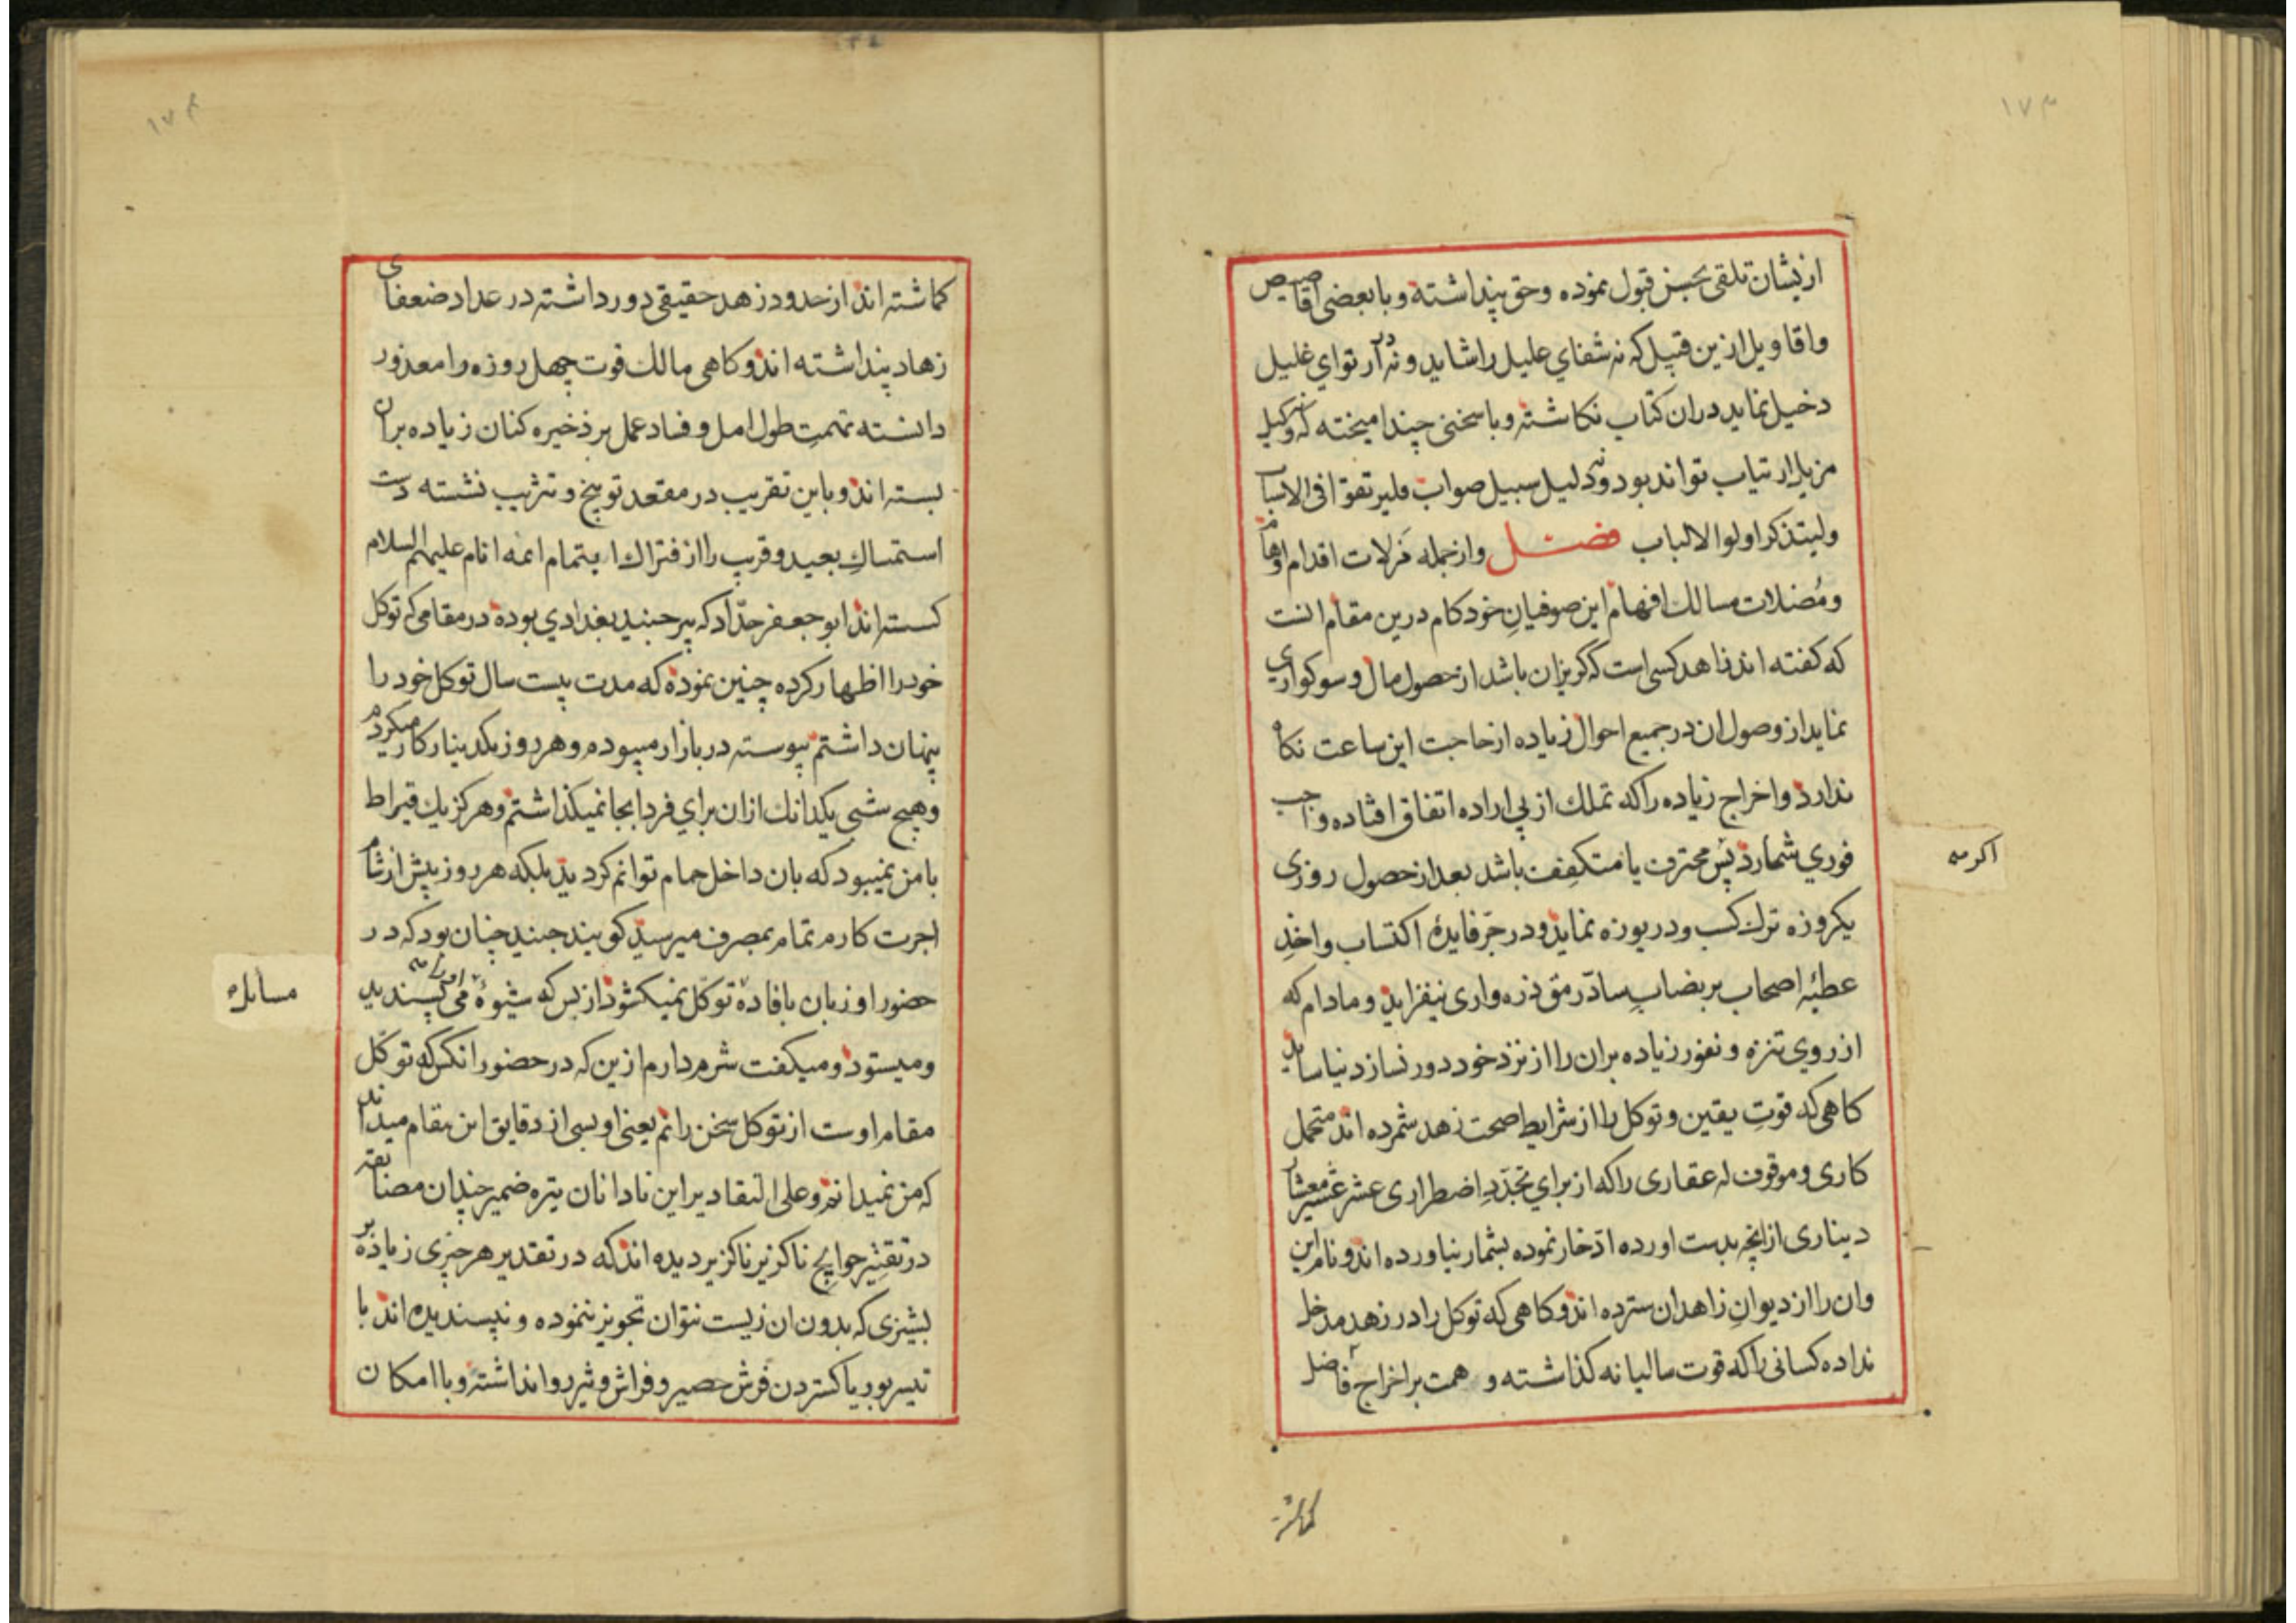 ۱۷۳
ازیشان تلقی بحسن قبول نموده و حق پنداشته و با بعضی اقاصیص
واقاویل ازین قبیل که نه شفای علیل را شاید و نه در ارتوای غلیل
دخیل نماید دران کتاب نکاشته و با سخنی چند امیخته که نه وکیل
مزیل ارتیاب تواند بود و نه دلیل سبیل صواب فلیرتقوا فی الاسباب
ولیتذکر اولوا الالباب فصل وازجمله مزلات اقدام اوهام
ومُضلات مسالك افهام این صوفیانِ خودکام درین مقام انست
که کفته اند زاهد کسی است که کریزان باشد از حصول مال و سوکواری
نماید از وصول ان در جمیع احوال زیاده از حاجت این ساعت نکاه
ندارد و اخراج زیاده را که تملك از پی اراده اتفاق افتاده واجب
فوری شمارد پس محترف یا متکفف باشد بعد از حصول روزی
یکروزه ترك کسب و دریوزه نماید و در جرّ فایدهٔ اکتساب واخذِ
عطیّه اصحاب بر نصابِ سادّ رمق ذره واری نیفزاید و مادام که
از روی تنزه و نفور زیاده بران را از نزد خود دور نسازد نیاساید
کاهی که قوتِ یقین و توکل را از شرایط صحت زهد شمرده اند متحمل
کاری و موقوف له عقاری را که از برای تجدّدِ اضطراری عشر عشیر معشار
دیناری از انچه بدست اورده ادّخار نموده بشمار نیاورده اند و نام این
وان را از دیوانِ زاهدان سترده اند و کاهی که توکل را در زهد مدخل
نداده کسانی را که قوت سالیانه کذاشته و همت بر اخراج فاضل
کماشته
اکر
۱۷۴
کماشته اند از حدود زهد حقیقی دور داشته در عداد ضعفای
زهاد پنداشته اند و کاهی مالك قوت چهل روزه را معذور
دانسته تهمتِ طول امل و فساد عمل بر ذخیره کنان زیاده بران
بسته اند و باین تقریب در مقعد توبیخ و تثریب نشسته دست
استمساكِ بعید و قریب را از فتراك ایتمام ائمه انام علیهم السلام
کسسته اند ابو جعفر حدّاد که پیر جنید بغدادی بوده در مقامی که توکل
خود را اظهار کرده چنین نموده که مدت بیست سال توکل خود را
پنهان داشتم پیوسته در بازار میبودم و هر روز بیکدینار کار میکردم
وهیچ شبی یکدانك ازان برای فردا بجا نمیکذاشتم و هرکز یك قیراط
با من نمیبود که بان داخل حمام توانم کردید بلکه هر روز پیش از شام
اجرت کارم تمام بمصرف میرسید کویند جنید چنان بود که در
حضور او زبان بافادهٔ توکل نمیکشود از بس که شیوهٔ او را می پسندید
و میستود و میکفت شرم دارم ازین که در حضور انکس که توکل
مقام اوست از توکل سخن رانم یعنی او بسی از دقایق این مقام میداند
که من نمیدانم و علی التقادیر این نادانان تیره ضمیر چندان مضایقه
در تقتیر حوایج ناکزیر ناکزیر دیده اند که در تقدیر هر چیزی زیاده بر
پشیزی که بدون ان زیست نتوان تجویز ننموده و نپسندیده اند با
تیسر بوریا کستردن فرش حصیر و فراش وثیر روا نداشته و با امکان